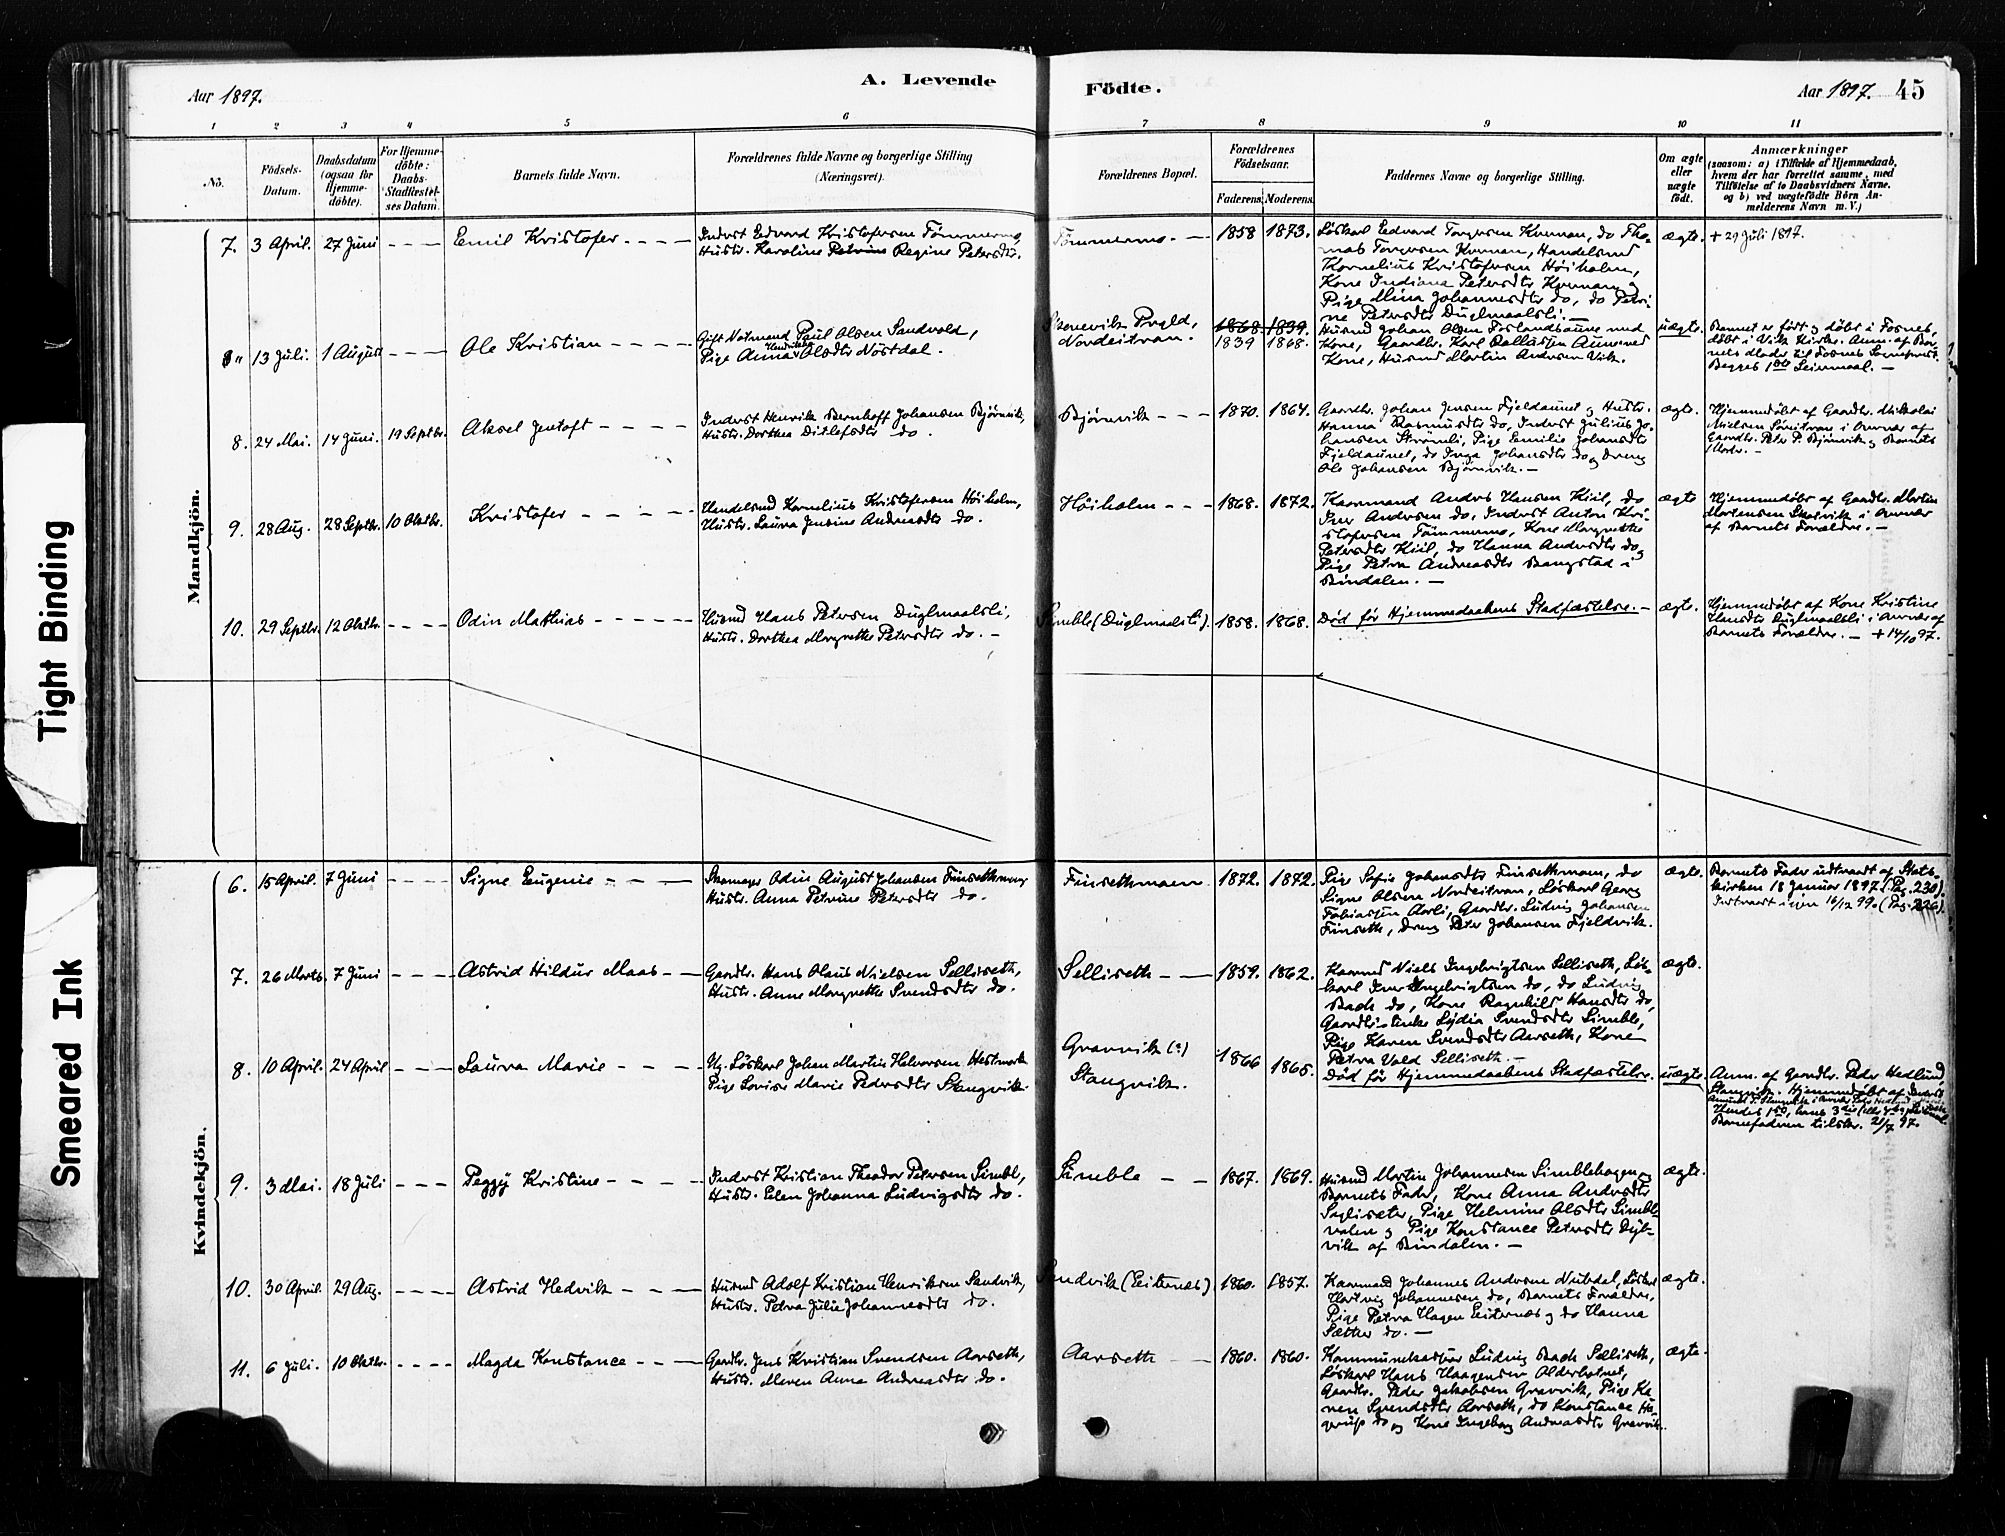 Tight Binding
Smeared Ink
A. Levende
Födte.
Aar 1897.
Aar 1897. 45
1 2 3 4 5 6
7 8 9 10 11
No.
Födsels-
Datum.
Daabsdatum
(ogsaa for
Hjemme-
döbte).
For Hjemme-
döbte:
Daabs-
Stadfæstel-
ses Datum.
Barnets fulde Navn.
Forældrenes fulde Navne og borgerlige Stilling
(Næringsvei).
Forældrenes Bopæl.
Forældrenes
Födselsaar.
Faderens. Moderens.
Faddernes Navne og borgerlige Stilling.
Om ægte
eller
uægte
födt.
Anmærkninger
(saasom: a) i Tilfælde af Hjemmedaab,
hvem der har forrettet samme, med
Tilföielse af to Daabsvidners Navne,
og b) ved uægtefödte Börn An-
melderens Navn m. V.)
Mandkjön.
7. 3 April. 27 Juni - - - Emil Kristofer - - - -
Inderst Edvard Kristofersen Tömmermo,
Hustr. Karoline Petrine Regine Petersdtr.
Tömmermo - - 1858 1873.
Löskarl Edvard Torgersen Kvernan, do Tho-
mas Torgersen Kvernan, Handelsmd
Kornelius Kristofersen Höiholm,
Kone Indiana Petersdtr Kvernan og
Pige Mina Johannesdtr do, do Petri-
ne Petersdtr Duglmaalsli. -
ægte. + 29 Juli 1897.
8" 13 Juli. 1 August - - - Ole Kristian - - - -
Gift Notmand Paul Olsen Sandvold,
Pige Anna Olsdtr Nöstdal.
Nordeitran.
1868. 1839.
1839 1868.
Husmd Johan Olsen Fislandsaune med
Kone, Gaardbr. Karl Rallassen Aune med
Kone, Husmd Martin Andersen Vik.
uægte.
Barnet er født og döbt i Fosnes,
døbt i Vik Kirke. Anm. af Bar-
nets Moder til Fosnes Sognepræst.
Begges 1ste Leiermaal. -
8. 24 Mai. 14 Juni. 19 Septbr. Aksel Jentoft - - - -
Inderst Henrik Bernhoff Johansen Bjørnvik,
Hustr. Dorthea Ditlefsdtr do.
Bjørnvik - - - 1870. 1864.
Gaardbr. Johan Jensen Fjeldaunet og Hustr.
Hanna Rasmusdtr do, Inderst Julius Jo-
hansen Strömli, Pige Emilie Johansdtr
Fjeldaunet, do Inga Johansdtr do og Dreng
Ole Johansen Bjørnvik. -
ægte.
Hjemmedøbt af Gaardbr. Nikolai
Nielsen Söreitran i Nærvær af
Gaardbr. Peter P. Bjørnvik og Barnets
Moder. -
9. 28 Aug. 28 Septbr. 10 Oktbr. Kristofer - - - - -
Handelsmd Kornelius Kristofersen Höiholm,
Hustr. Laura Jensine Andreasdtr do.
Höiholm - - - 1868. 1872.
Kaarmand Anders Hansen Kiil, do
Iver Andersen do, Inderst Anton Kri-
stofersen Tömmermo, Kone Margrethe
Petersdtr Kiil, do Hanna Andersdtr do og
Pige Petra Andreasdtr Bangstad i
Bindalen. -
ægte
Hjemmedøbt af Gaardbr. Martin
Mortensen Skarsvik i Nærvær
af Barnets Forældre. -
10. 29 Septbr. 12 Oktbr. - - - - Odin Mathias - - - - - -
Husmd Hans Petersen Duglmaalsli,
Hustr. Dorthea Margrethe Petersdtr do. -
Simble (Duglmaalsli). 1858. 1868.
Død før Hjemmedaabens Stadfæstelse. -
ægte.
Hjemmedøbt af Kone Kristine
Hansdtr Duglmaalsli i Nærvær af
Barnets Forældre. - + 14/10 97.
Kvindekjön.
6. 15 April. 7 Juni - - - - Signe Eugenie - - - -
Skomager Odin August Johansen Finsethmoen
Hustr. Anna Petrine Petersdtr do.
Finsethmoen 1872. 1872.
Pige Sofie Johansdtr Finsethmoen, do
Signe Olsen Nordeitran, Löskarl Georg
Tobiassen Aarli, Gaardbr. Ludvig Johansen
Finseth, Dreng Peter Johansen Fjeldvik.
ægte.
Barnets Fader udtraadt af Stats-
kirken 18 Januar 1897. (Pag. 230).
Indtraadt igjen 16/12 99. (Pag. 226).
7. 26 Marts. 7 Juni - - - - Astrid Hildur Maas - -
Gaardbr. Hans Olaus Nielsen Selliseth,
Hustr. Anne Margrethe Svendsdtr do.
Selliseth - - 1859. 1862.
Kaarmd Niels Ingebrigtsen Selliseth, Lös-
karl Iver Ingebrigtsen do, do Ludvig
Bach do, Kone Ragnhild Hansdtr do,
Gaardbr.-Enke Lydia Svendsdtr Simble,
Pige Karen Svendsdtr Aarseth, Kone
Petra Vold Selliseth. -
ægte.
8. 10 April. 24 April - - - Laura Marie - - - -
Ug. Löskarl Johan Martin Halvorsen Hestmark
Pige Lovise Marie Pedersdtr Stangvik.
Gravvik (?)
Stangvik.
1866 1865.
Død før Hjemmedaabens Stadfæstelse.
uægte.
Anm. af Gaardbr. Peder Hedlund
Stangvik. Hjemmedøbt af
Barnefaderen tilskr. 21/7 97.
9. 3 Mai. 18 Juli - - - - Peggy Kristine - - - -
Inderst Kristian Theodor Petersen Simble,
Hustr. Elen Johanna Ludvigsdtr do.
Simble - - 1867. 1869.
Husmd Martin Johannesen Simblehagen og
Barnets Fader, Kone Anna Andersdtr
Seglisæter, Pige Helmine Olsdtr Simble-
valen og Pige Konstance Petersdtr Dyb-
vik af Bindalen. -
ægte.
10. 30 April. 29 Aug. - - - - Astrid Hedvik - - - -
Husmd Adolf Kristian Henriksen Sandvik,
Hustr. Petra Julie Johannesdtr do.
Sandvik (Eiternæs) 1860. 1857.
Kaarmand Johannes Andersen Nubdal, Löskarl
Hartvig Johannesen do, Barnets Forældre,
Pige Petra Hagen Eiternæs og do Hanna
Sæther do. -
ægte.
11. 6 Juli. 10 Oktbr. - - - - Magda Konstance - - - -
Gaardbr. Jens Kristian Svendsen Aarseth,
Hustr. Maren Anna Andreasdtr do.
Aarseth - 1860. 1860.
Kommunekasser Ludvig Bach Selliseth,
Löskarl Hans Haagensen Olderbotnet,
Gaardbr. Peder Jakobsen Gravvik, Pige Ka-
ren Svendsdtr Aarseth, do Konstance Ha-
gerup do og Kone Ingeborg Andreasdtr Gravvik.
ægte.